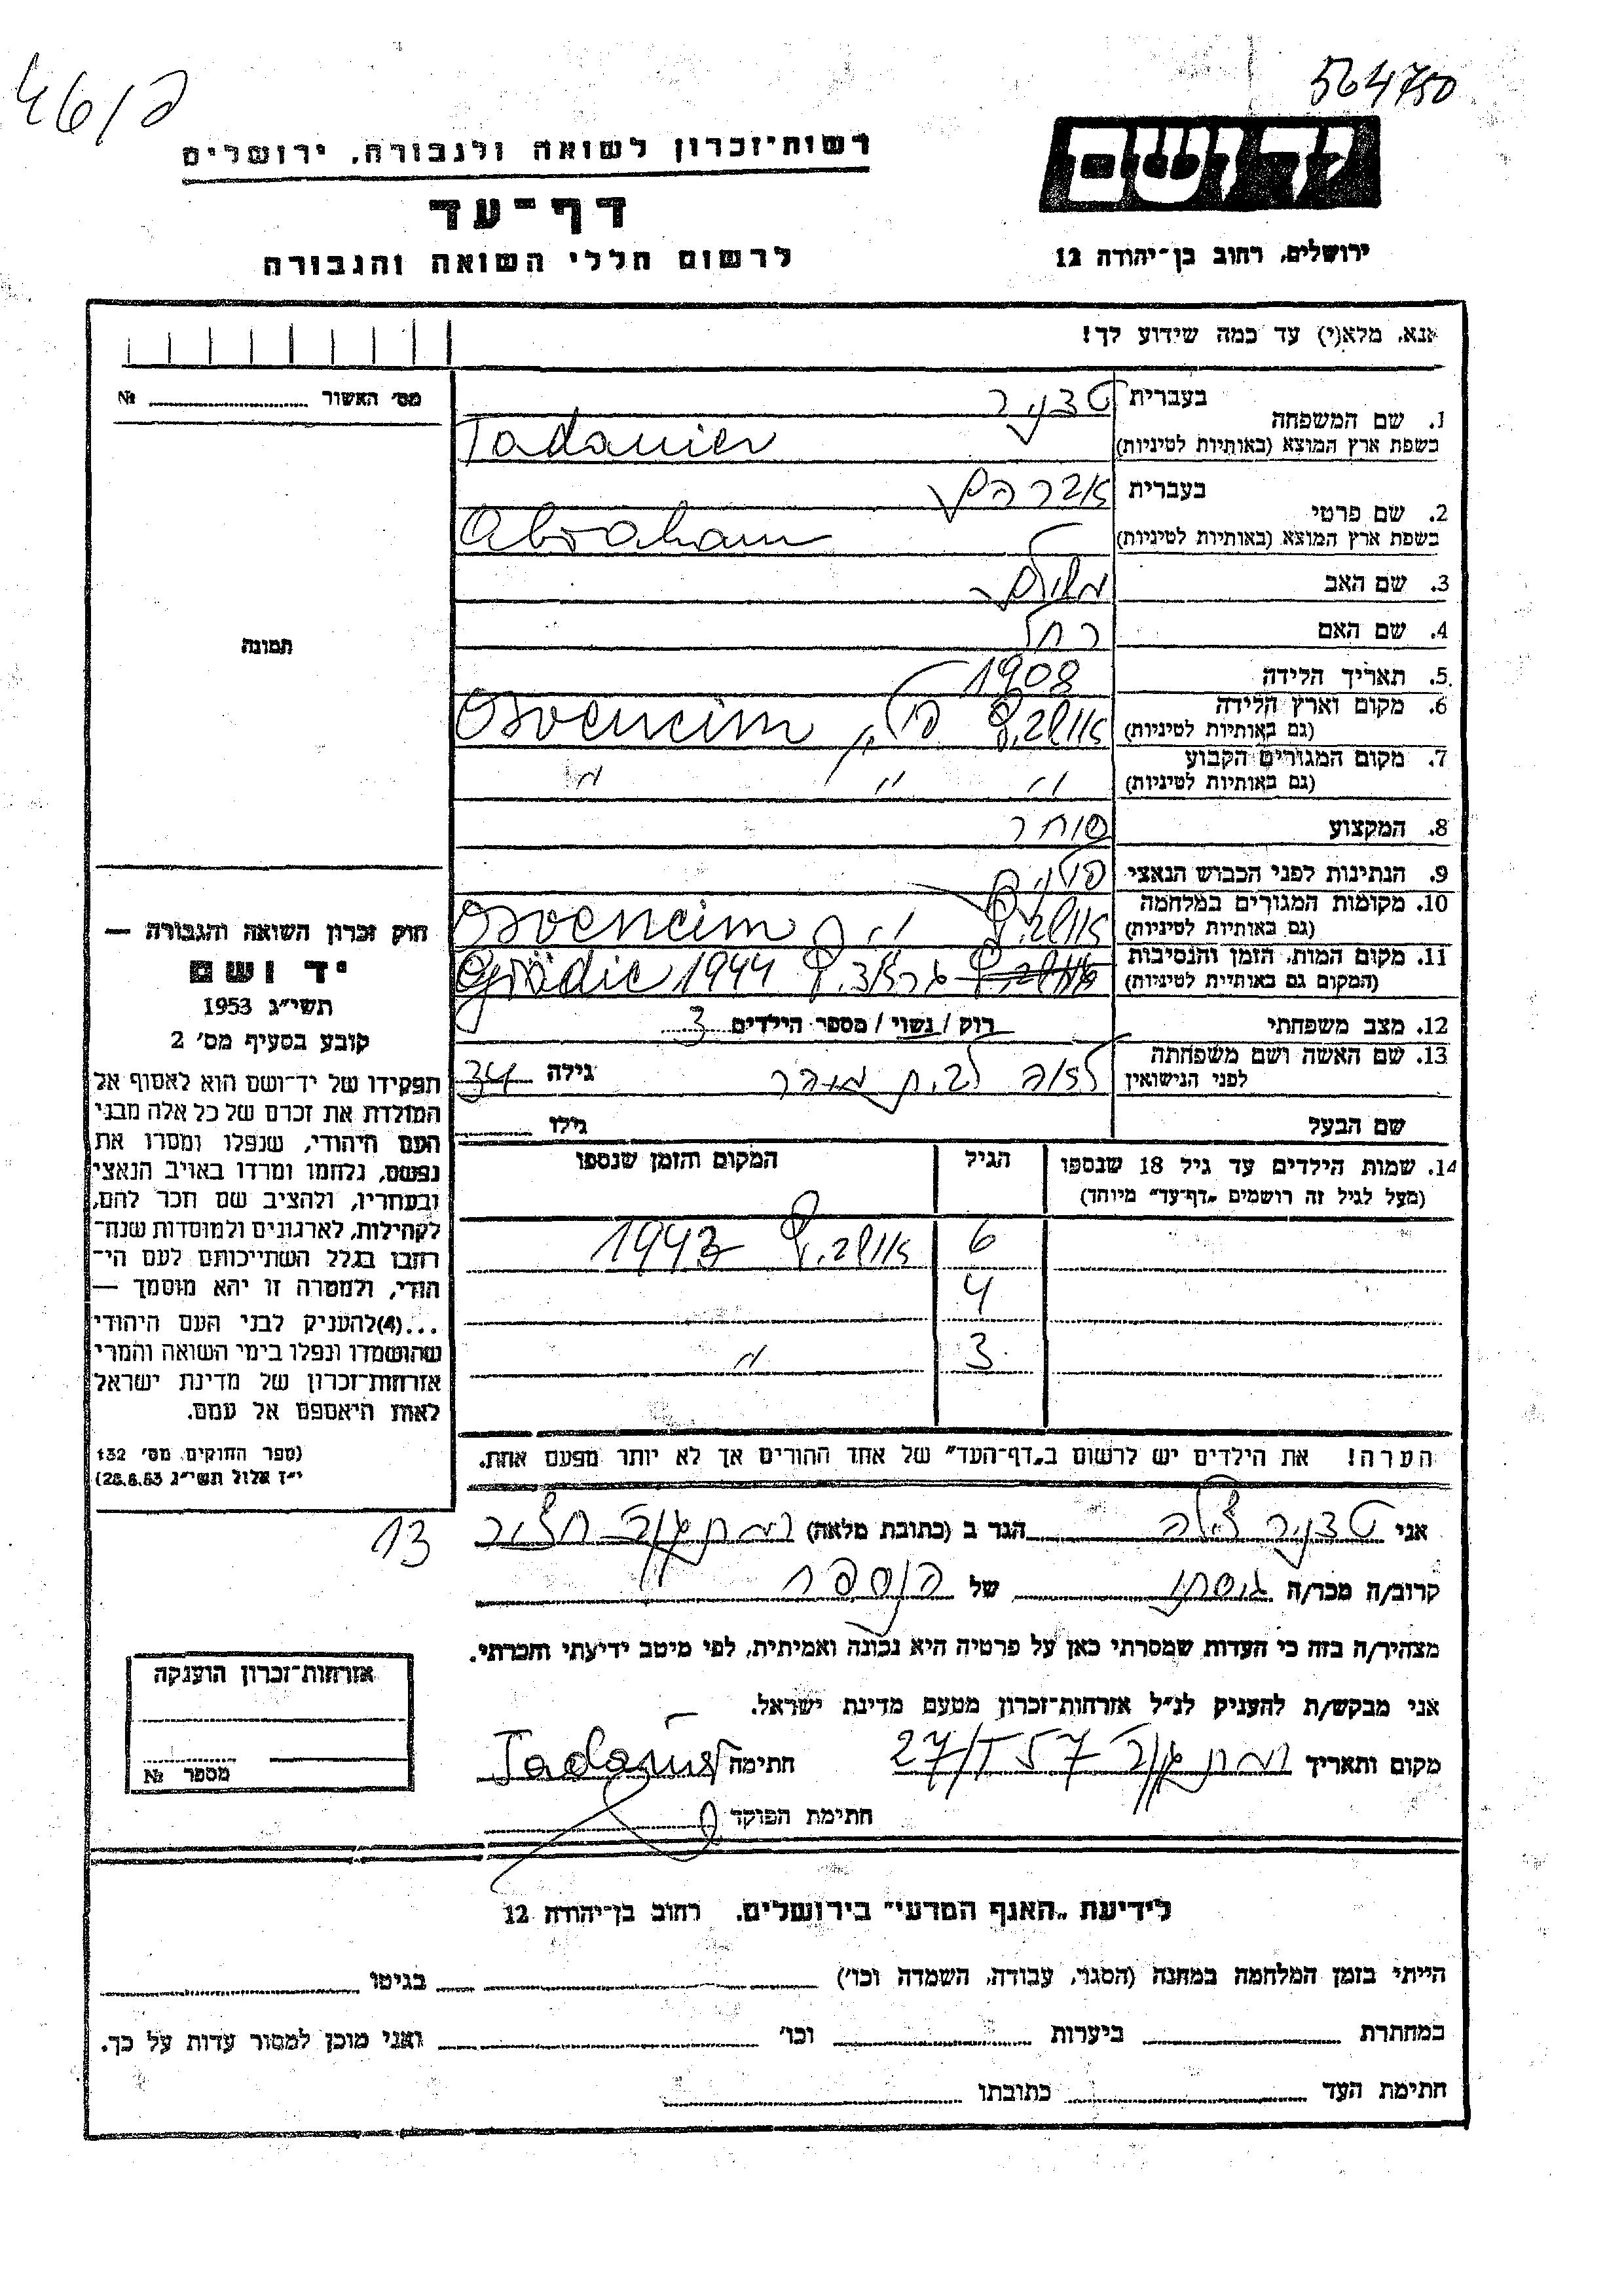 564750
46/כ
יד ושם
רשות־זכרון לשואה ולגבורה, ירושלים
דף־עד
לרשום חללי השואה והגבורה
ירושלים, רחוב בן־יהודה 12
אנא, מלא(י) עד כמה שידוע לך!
מס׳ האשור № 
1. שם המשפחה
בעברית טדניר
בשפת ארץ המוצא (באותיות לטיניות) Tadanier
2. שם פרטי
בעברית אברהם
בשפת ארץ המוצא (באותיות לטיניות) Abraham
3. שם האב משולם
4. שם האם רחל
5. תאריך הלידה 1908
6. מקום וארץ הלידה
(גם באותיות לטיניות) Osvencim
7. מקום המגורים הקבוע
(גם באותיות לטיניות) " " "
8. המקצוע סוחר
9. הנתינות לפני הכבוש הנאצי פולנית
10. מקומות המגורים במלחמה
(גם באותיות לטיניות) Osvencim
11. מקום המות, הזמן והנסיבות
(המקום גם באותיות לטיניות) 1944
12. מצב משפחתי רוק / נשוי / מספר הילדים 3
13. שם האשה ושם משפחתה
לפני הנישואין לאה לבית גילה 34
שם הבעל גילו
14. שמות הילדים עד גיל 18 שנספו
(מעל לגיל זה רושמים „דף־עד״ מיוחד)
הגיל
המקום והזמן שנספו
6 1943
4
3 "
הערה! את הילדים יש לרשום ב„דף־העד״ של אחד ההורים אך לא יותר מפעם אחת.
תמונה
חוק זכרון השואה והגבורה —
יד ושם
תשי״ג 1953
קובע בסעיף מס׳ 2
תפקידו של יד־ושם הוא לאסוף אל
המולדת את זכרם של כל אלה מבני
העם היהודי, שנפלו ומסרו את
נפשם, נלחמו ומרדו באויב הנאצי
ובעוזריו, ולהציב שם וזכר להם,
לקהילות, לארגונים ולמוסדות שנח־
רבו בגלל השתייכותם לעם הי־
הודי, ולמטרה זו יהא מוסמך —
...(4)להעניק לבני העם היהודי
שהושמדו ונפלו בימי השואה והמרי
אזרחות־זכרון של מדינת ישראל
לאות היאספם אל עמם.
(ספר החוקים מס׳ 132
י״ז אלול תשי״ג 28.8.53)
אני טדניר הגר ב (כתובת מלאה) רמת גן
13
קרוב/ה מכר/ה גיסתו של הנספה
מצהיר/ה בזה כי העדות שמסרתי כאן על פרטיה היא נכונה ואמיתית, לפי מיטב ידיעתי והכרתי.
אני מבקש/ת להעניק לנ״ל אזרחות־זכרון מטעם מדינת ישראל.
מקום ותאריך רמת גן 27/I 57 חתימה Tadanier
חתימת הפוקד
אזרחות־זכרון הוענקה
מספר №
לידיעת „האגף המדעי״ בירושלים, רחוב בן־יהודה 12
הייתי בזמן המלחמה במחנה (הסגר, עבודה, השמדה וכו׳) בגיטו
במחתרת ביערות וכו׳ ואני מוכן למסור עדות על כך.
חתימת העד כתובתו